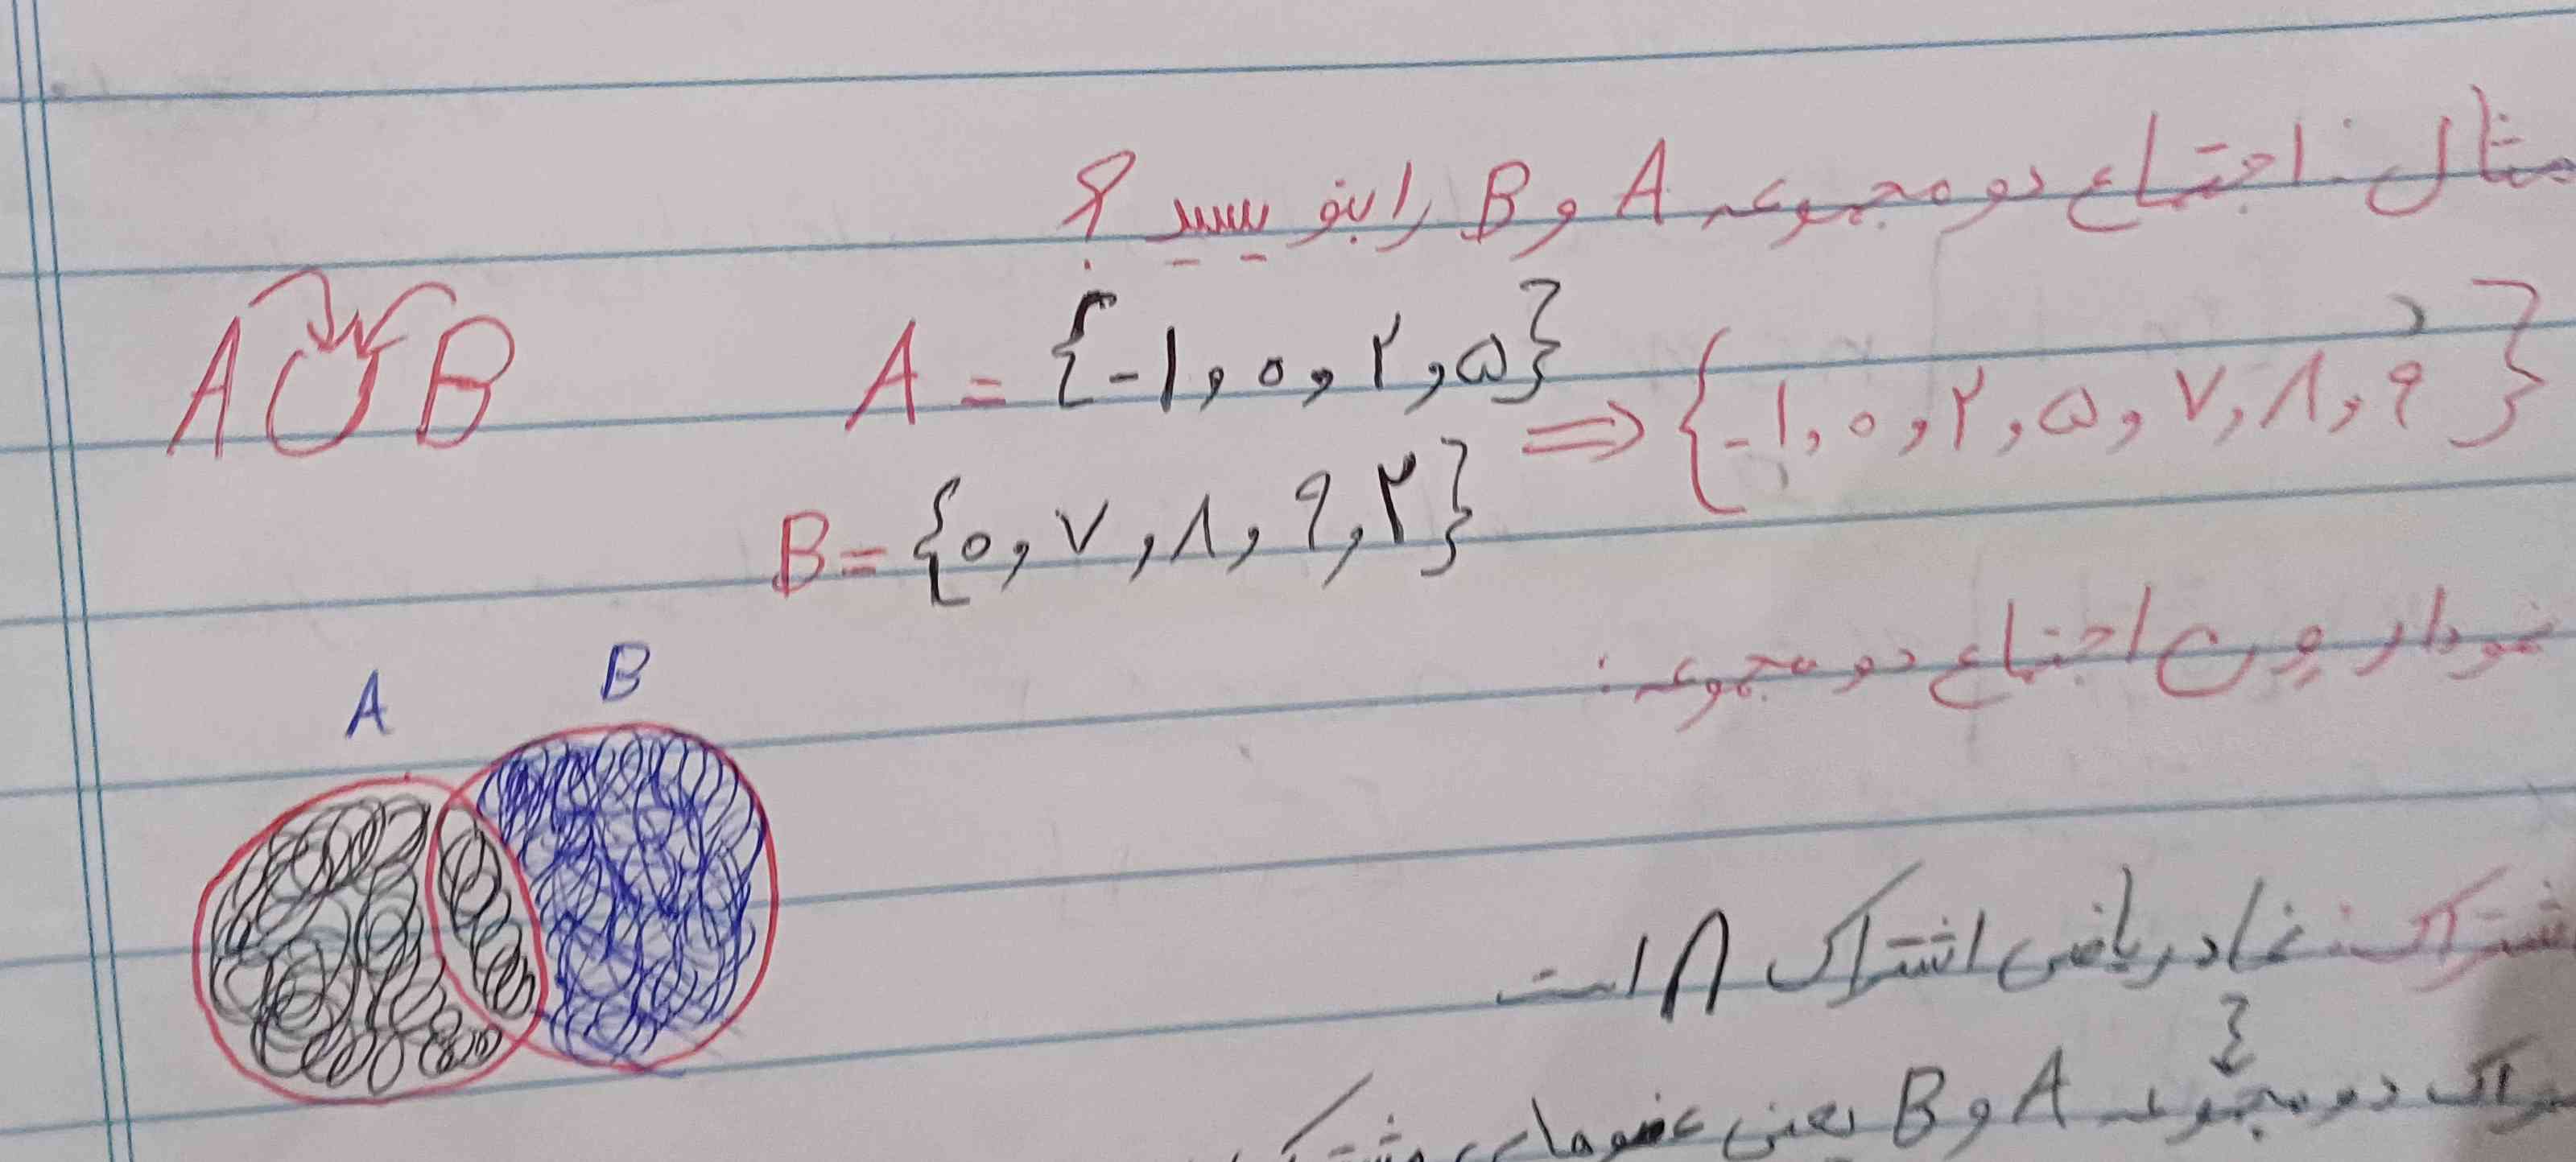 مثال: اجتماع دو مجموعه A و B را بنویسید ؟
A ∪ B
A = {-۱, ۰, ۲, ۵} ⇒ {-۱, ۰, ۲, ۵, ۷, ۸, ۹}
B = {۰, ۷, ۸, ۹, ۲}
نمودار ون اجتماع دو مجموعه:
A B
اشتراک: نماد ریاضی اشتراک ∩ است
دو مجموعه A و B یعنی عضوهای